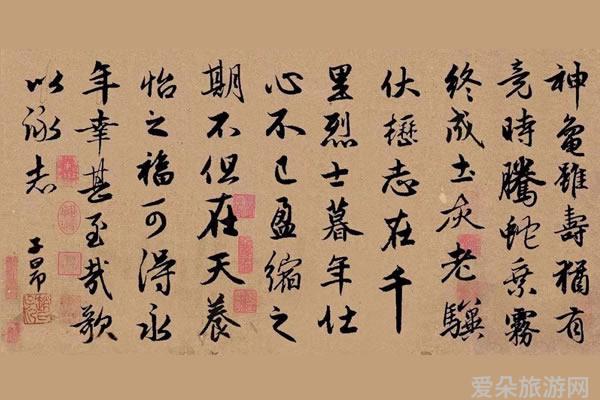 神龜雖壽猶有
竟時騰蛇乘霧
終成土灰老驥
伏櫪志在千
里烈士暮年壮
心不已盈縮之
期不但在天養
怡之福可得永
年幸甚至哉歌
以詠志
子昂
爱朵旅游网